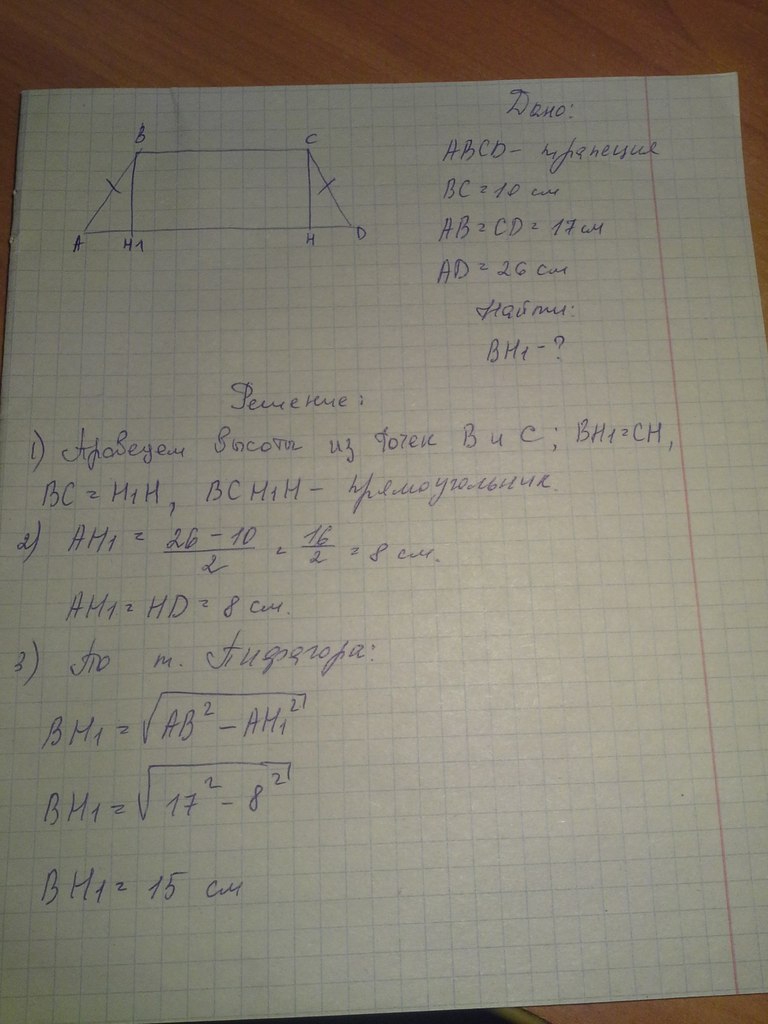 B C
A H1 H D
Дано:
ABCD - трапеция
BC = 10 см
AB = CD = 17 см
AD = 26 см
Найти:
BH1 - ?
Решение:
1) Проведем высоты из точек B и C; BH1 = CH,
BC = H1H, BCH1H - прямоугольник.
2) AH1 = \frac{26 - 10}{2} = \frac{16}{2} = 8 см.
AH1 = HD = 8 см.
3) По т. Пифагора:
BH1 = \sqrt{AB^2 - AH1^2}
BH1 = \sqrt{17^2 - 8^2}
BH1 = 15 см